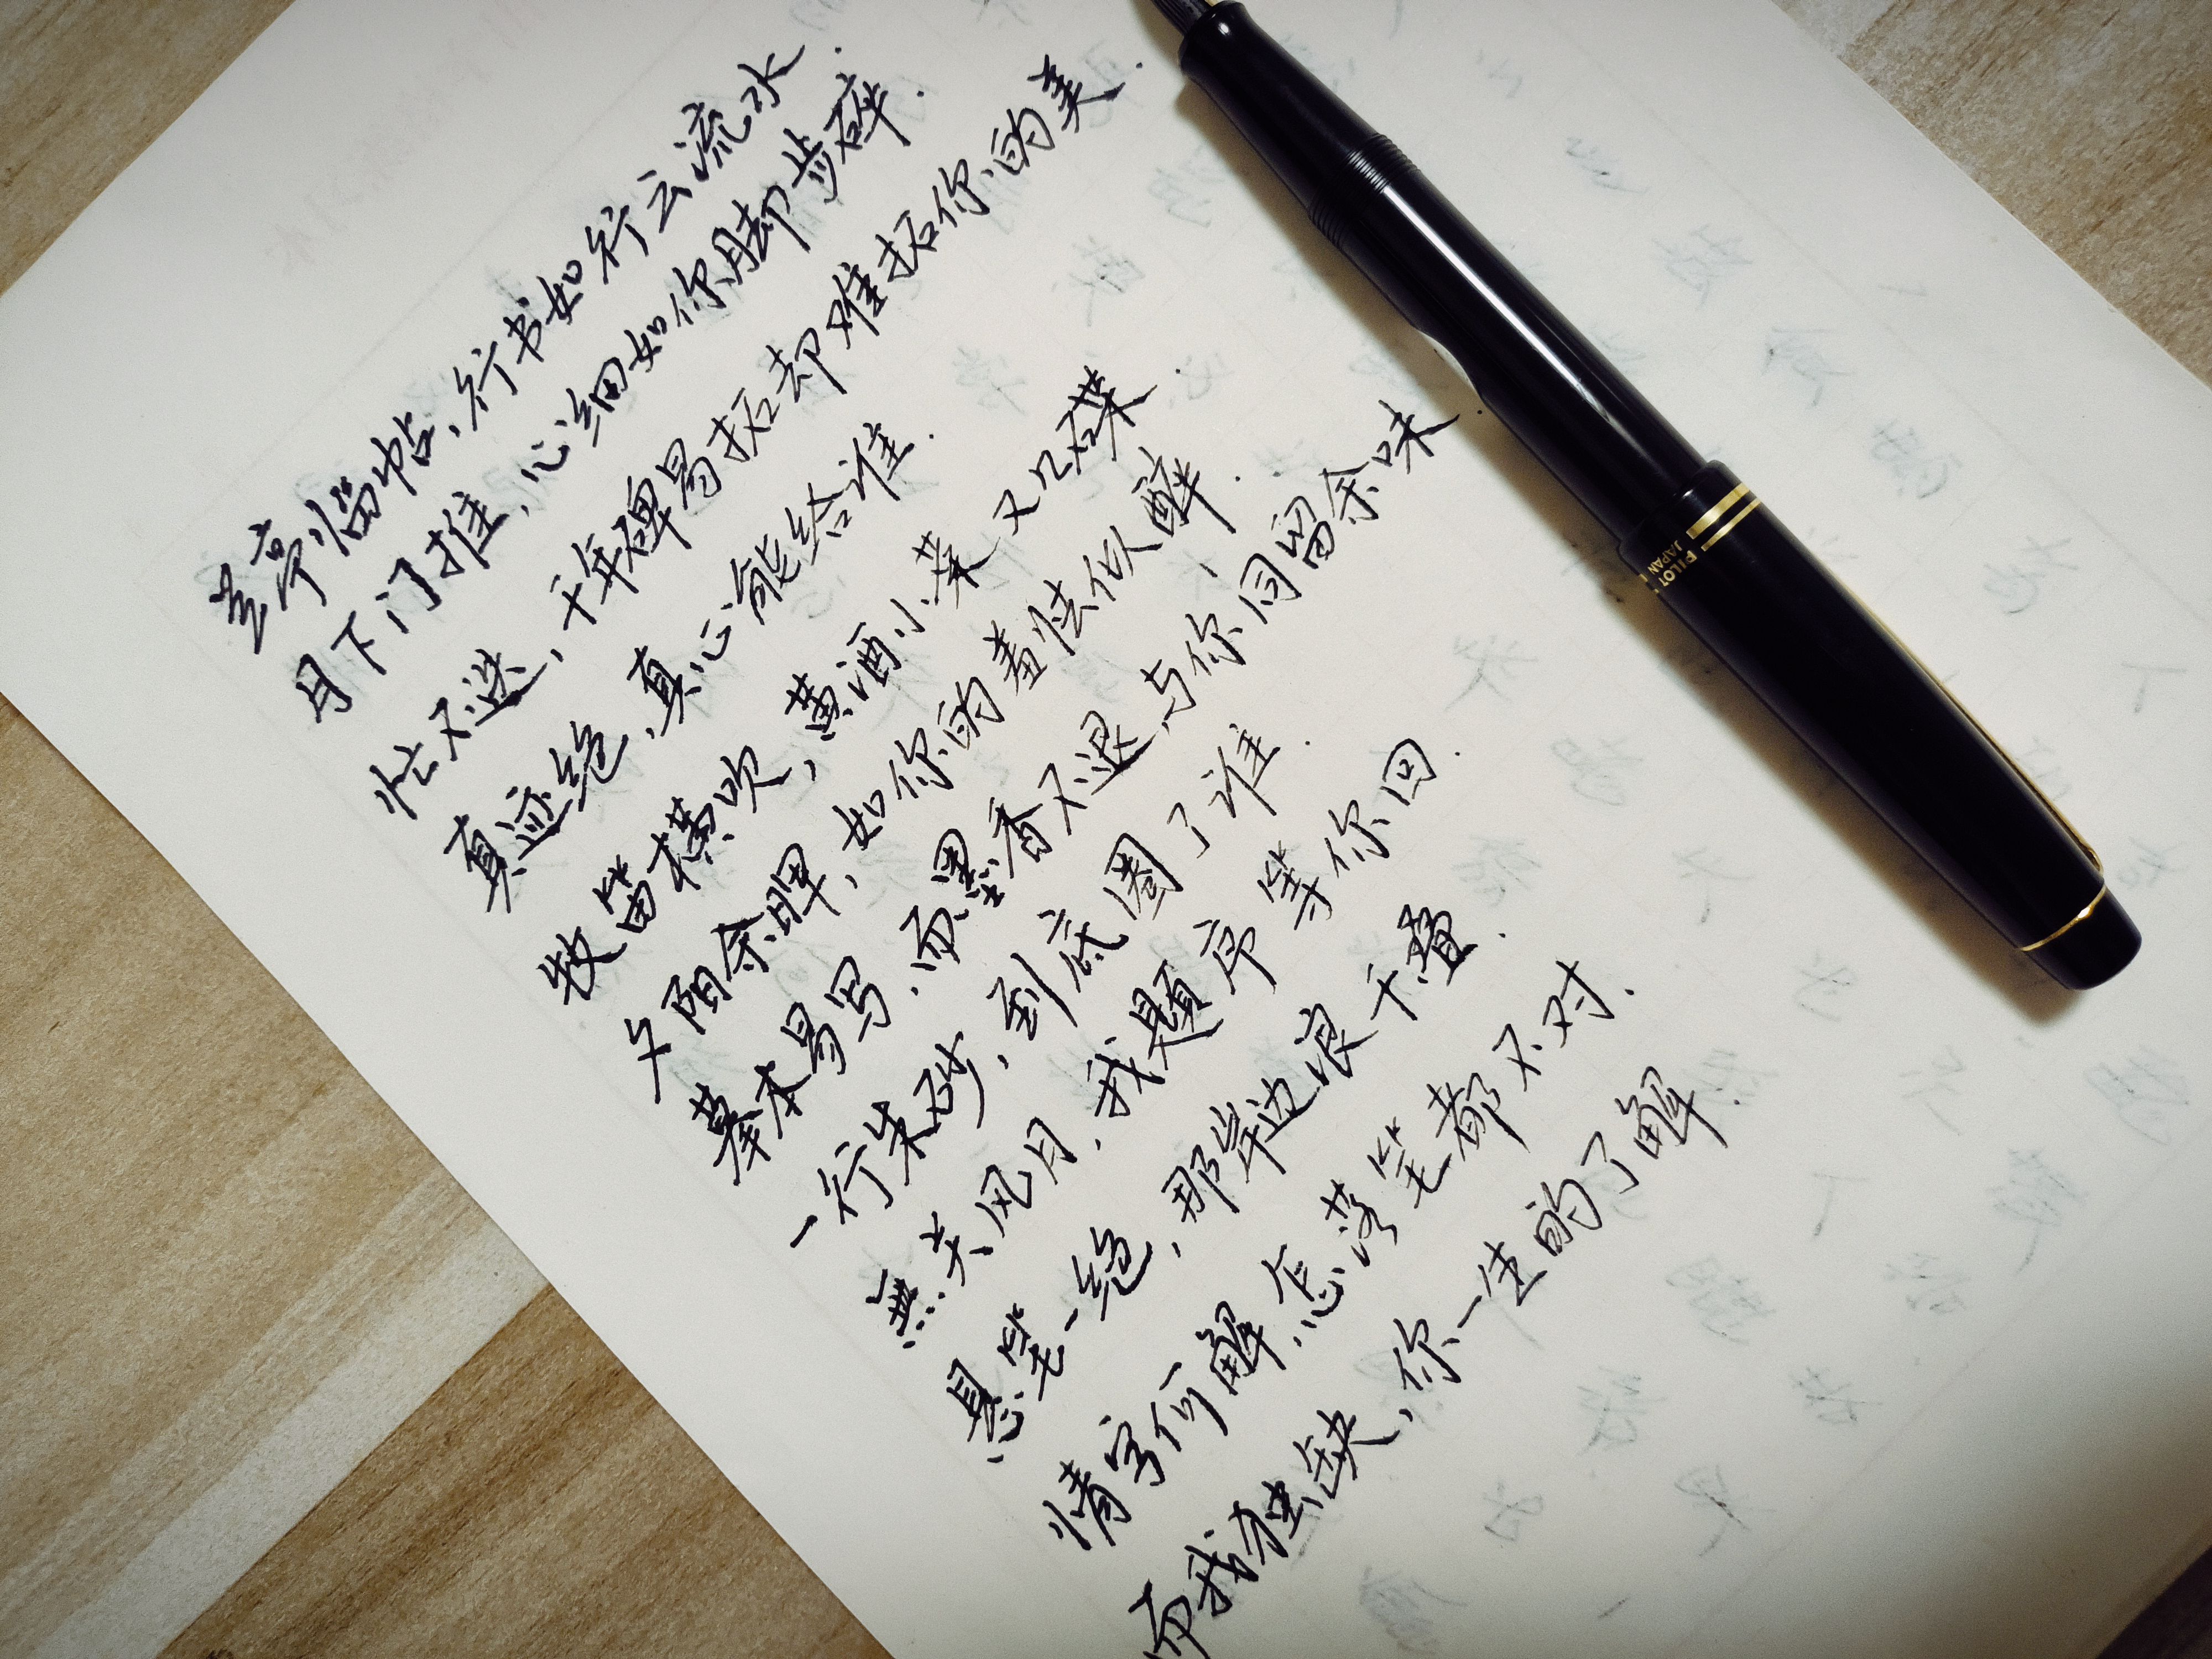 兰亭临帖，行书如行云流水.
月下门推，心细如你脚步碎.
忙不迭，千年碑易拓却难拓你的美.
真迹绝，真心能给谁.
牧笛横吹，黄酒小菜又几碟.
夕陌余晖，如你的羞怯似醉.
摹本易写，而墨香不退，与你同留余味.
一行朱砂，到底圈了谁.
無关风月，我题序等你回.
悬笔一绝，那岸边浪千叠.
情字何解，怎落笔都不对.
而我独缺，你一生的了解
PILOT
JAPAN